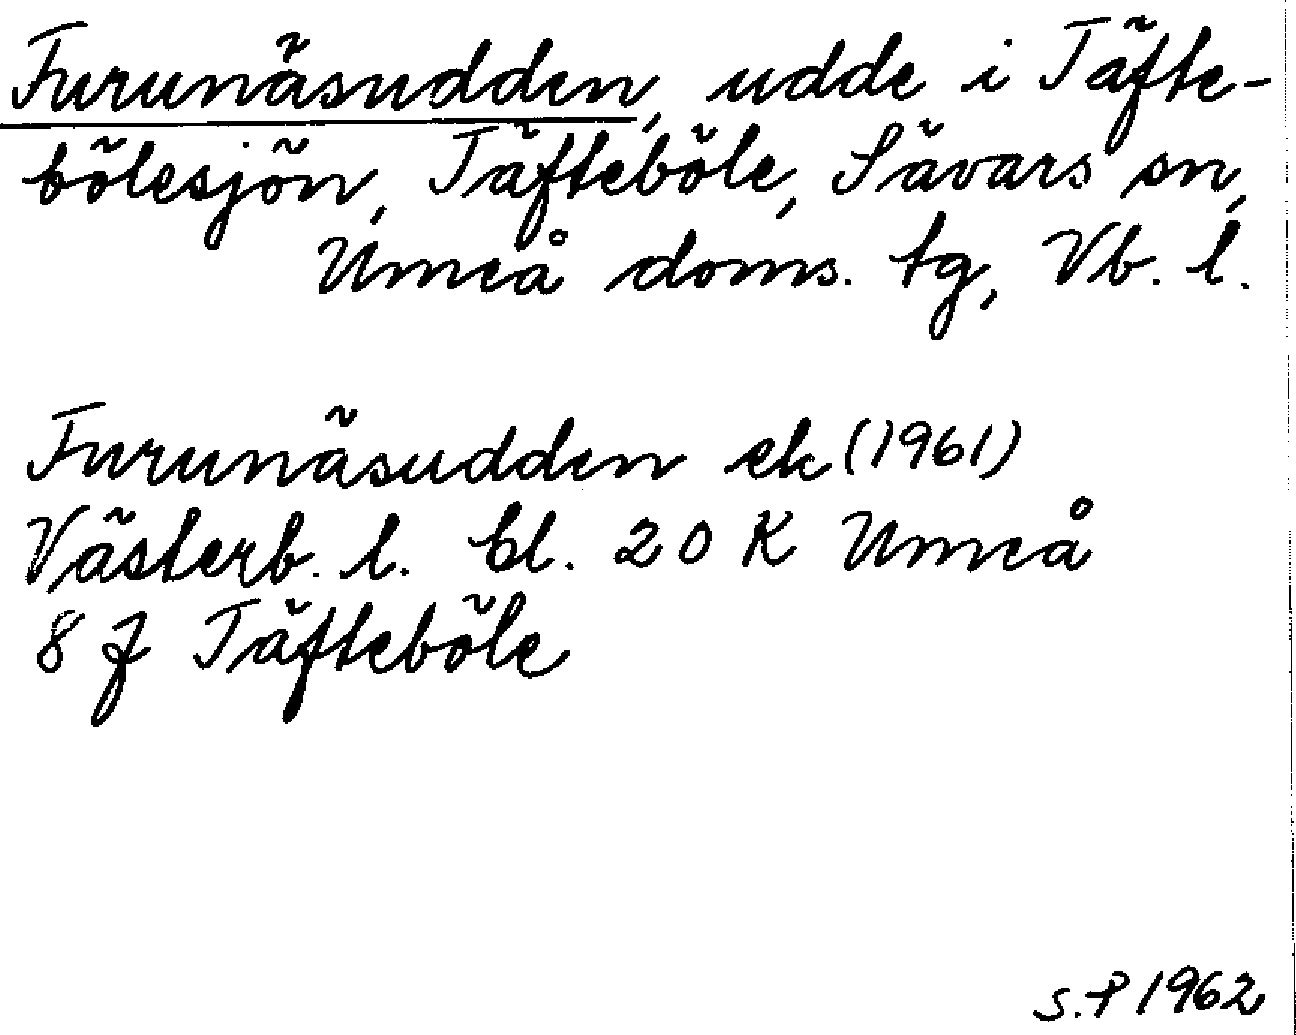 Furunäsudden, udde i Täfte-
bölesjön, Täfteböle, Sävars sn,
Umeå doms. tg, Vb. l.
Furunäsudden ek (1961)
Västerb. l. bl. 20 K Umeå
8 f Täfteböle
S.P 1962